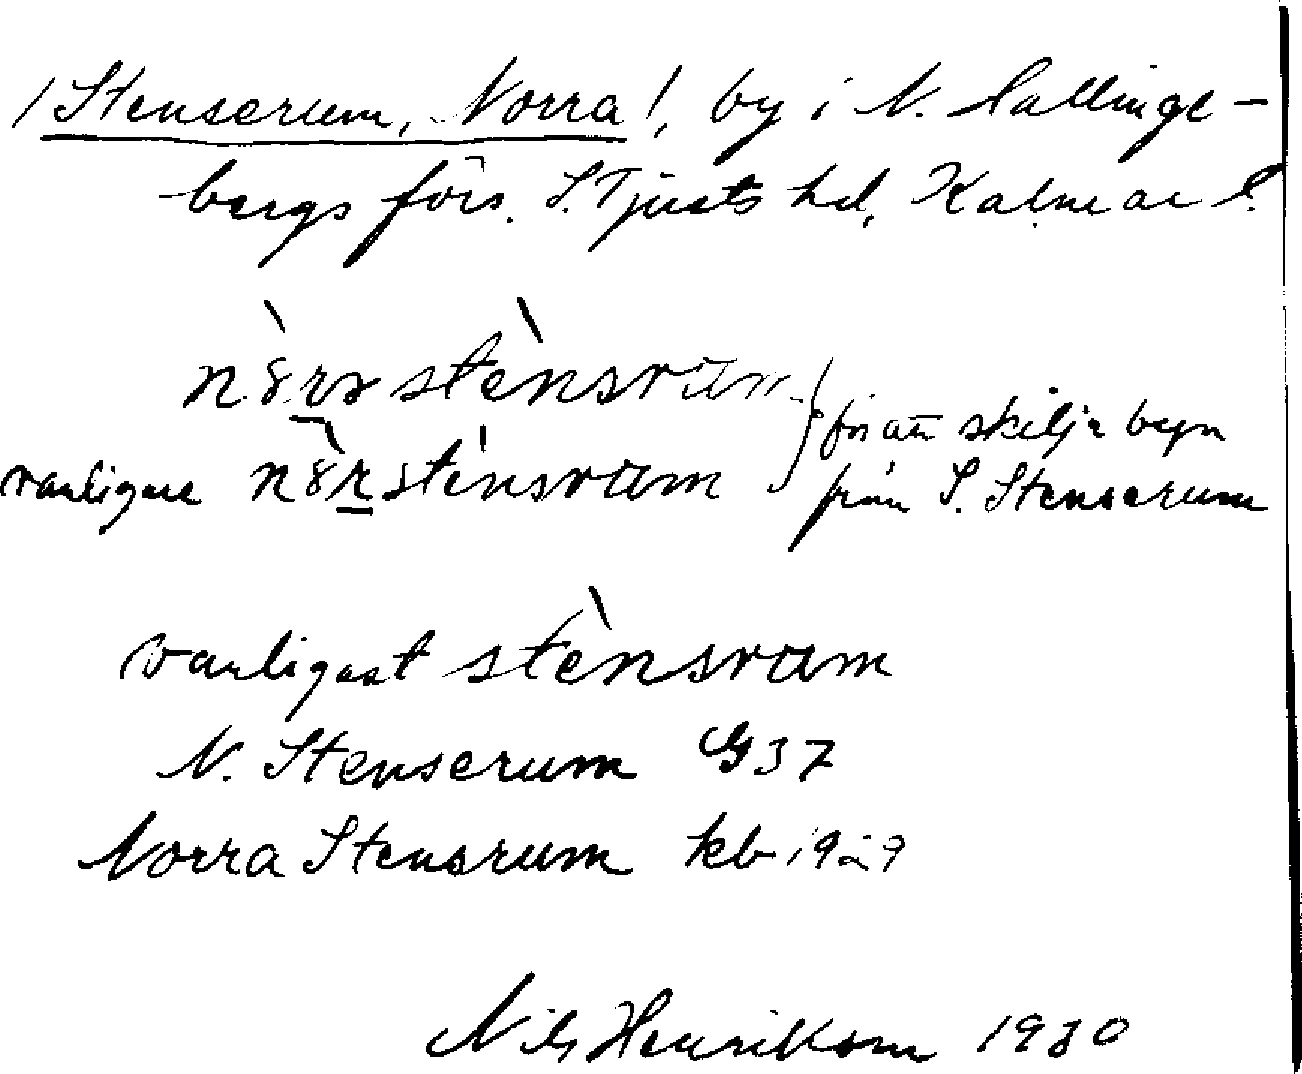 /Stenserum, Norra/, by i N. Hallinge-
bergs förs. S. Tjusts hd, Kalmar l.
stènsram
vanligare stènsram
för att skilja byn
från S. Stenserum
vanligast stènsram
N. Stenserum G 37
Norra Stensrum kb 1929
Nils Henrikson 1930